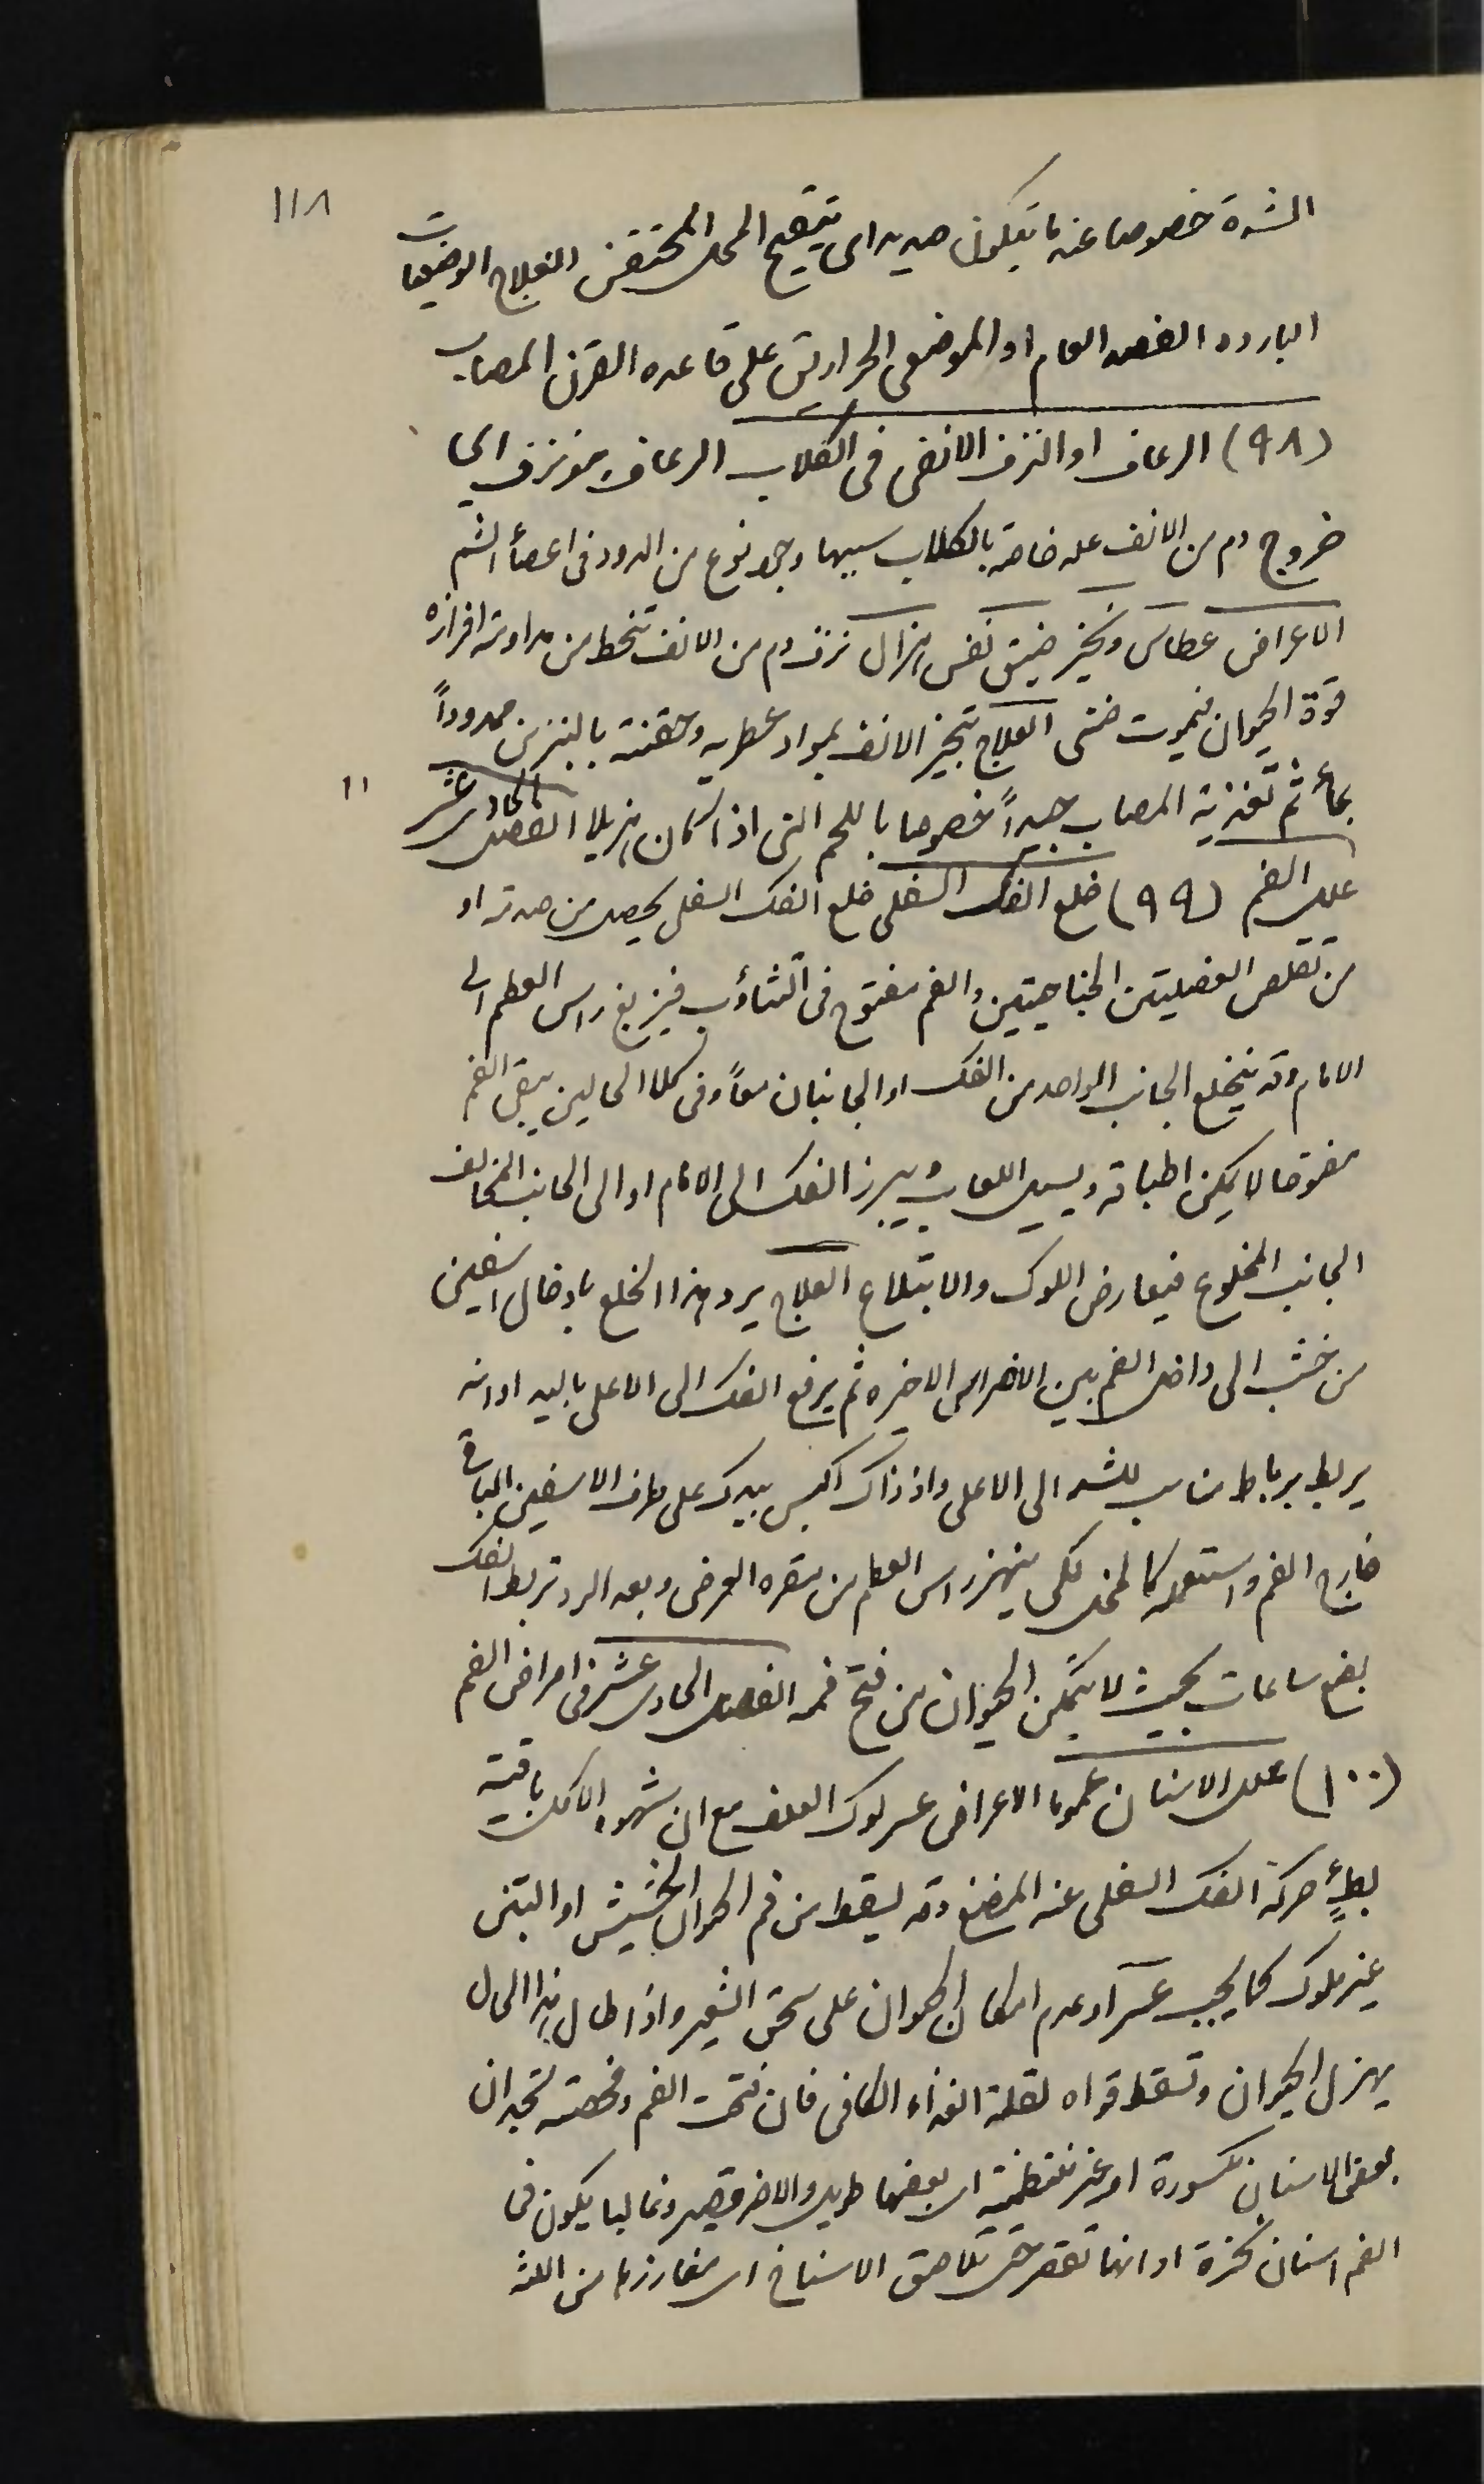 ١١٨
الشدة خصوصا عند ما يتكون صديد اى يتقيح المحل المحتقن العلاج الوضعيات
الباردة الفصد العام او الموضعى الحراريق على قاعدة القرن المصاب
(٩٨) الرعاف او النزف الانفى فى الكلاب الرعاف هو نزف اى
خروج دم من الانف علة خاصة بالكلاب سببها وجود نوع من الدود فى اعضأ الشم
الاعراض عطاس ونخير ضيق نفس هزال نزف دم من الانف تنحط من مداومة افرازه
قوة الحيوان فيموت ضنى العلاج تبخير الانف بمواد عطرية وحقنه بالبنزين ممدوداً
بمأ ثم تغذية المصاب جيداً خصوصا باللحم النى اذا كان هزيلا الفصل الحادى عشر
١١
علل الفم (٩٩) خلع الفك السفلى خلع الفك السفلى يحصل من صدمة او
من تقلص العضليتين الجناحيتين والفم مفتوح فى التثاؤب فيزيغ راس العظم الى
الامام وقد ينخلع الجانب الواحد من الفك او الجانبان معاً وفى كلا الحالين يبقى الفم
مفتوحا لا يمكن اطباقه ويسيل اللعاب ويبرز الفك الى الامام او الى الجانب المخالف
الجانب المخلوع فيعارض اللوك والابتلاع العلاج يرد هذا الخلع بادخال اسفين
من خشب الى داخل الفم بين الاضراس الاخيرة ثم يرفع الفك الى الاعلى باليد او انه
يربط برباط مناسب للشد الى الاعلى واذ ذاك اكبس بيدك على طرف الاسفين الباقى
خارج الفم واستعمله كالمخل لكى ينهز راس العظم من مقره العرضى وبعد الرد تربط الفك
بضع ساعات بحيث لا يتمكن الحيوان من فتح فمه الفصل الحادى عشر فى امراض الفم
(١٠٠) علل الاسنان عموما الاعراض عسر لوك العلف مع ان شهوة الاكل باقية
بطءٍ حركة الفك السفلى عند المضغ وقد يسقط من فم الحيوان الحشيش او التبن
غير ملوك كما يجب عسر او عدم امكان الحيوان على سحق الشعير واذا طال هذا الحال
يهزل الحيوان وتسقط قواه لقلة الغذاء الكافى فان فتحت الفم وفحصته تجد ان
بعض الاسنان مكسورة او غير منتظمة اى بعضها طويل والاخر قصير وغالبا يكون فى
الفم اسنان نخرة او انها تقصر حتى تلاصق الاسناخ اى مغارزها من اللثة